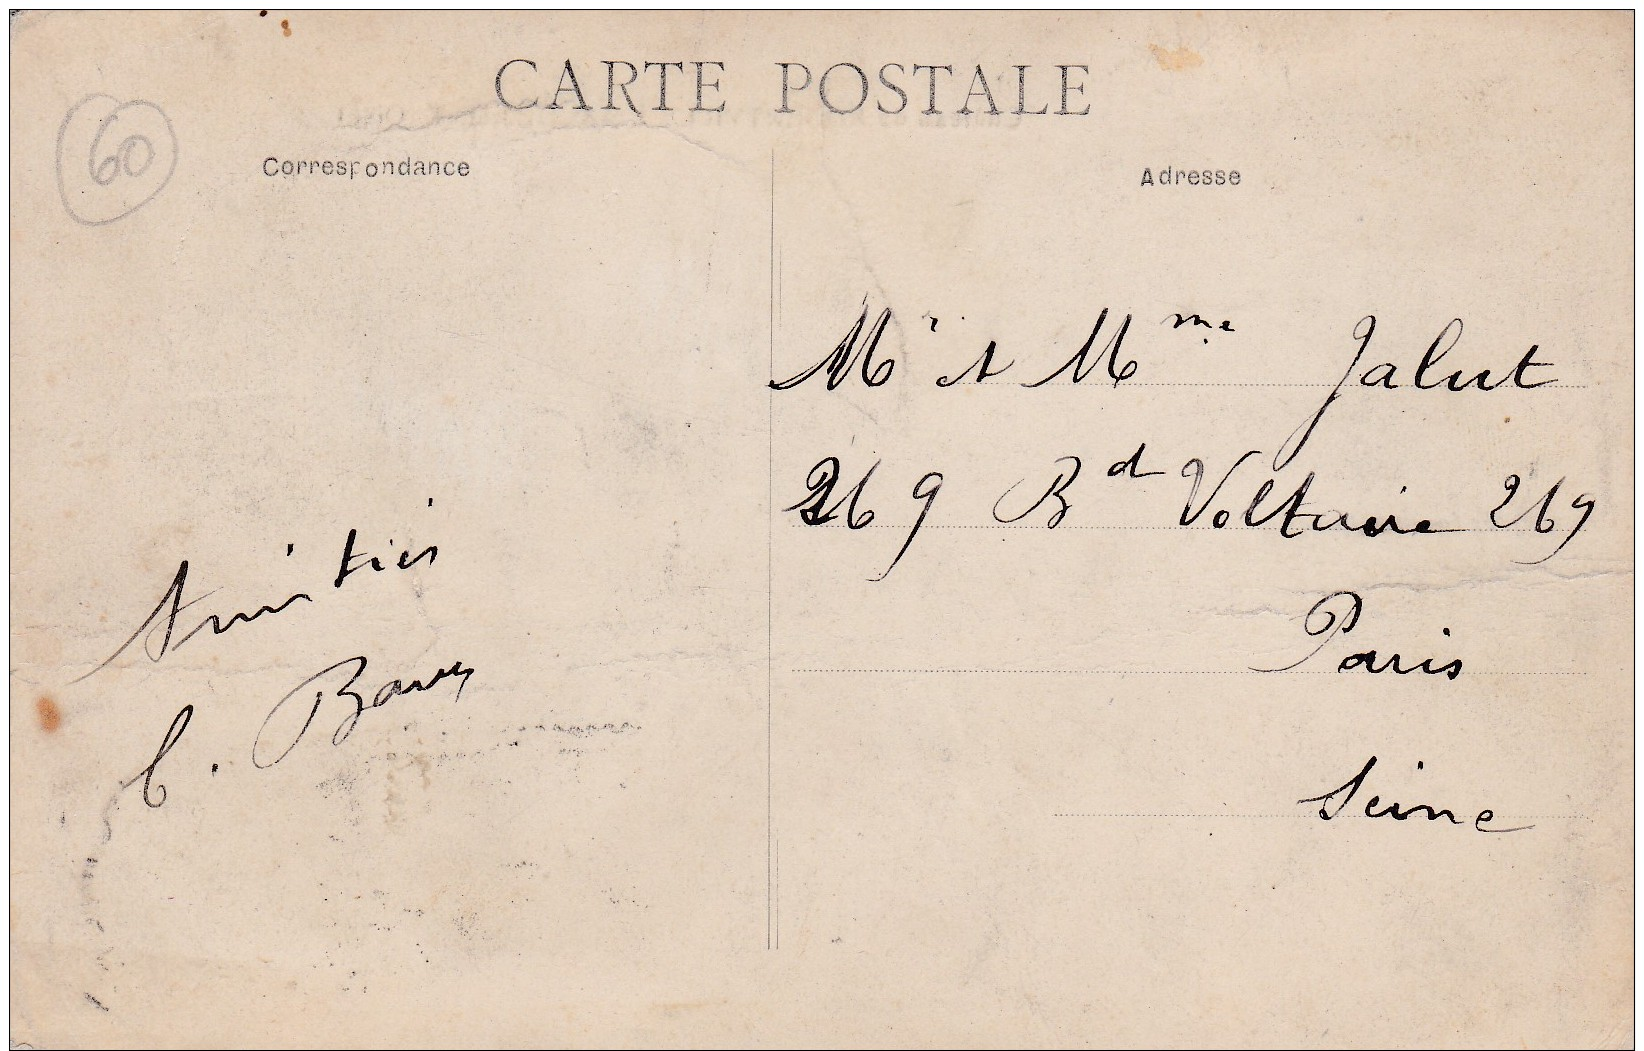 CARTE POSTALE
60
Correspondance
Adresse
Mr et Mme Jalut
269 Bd Voltaire 269
Paris
Seine
Amitiés